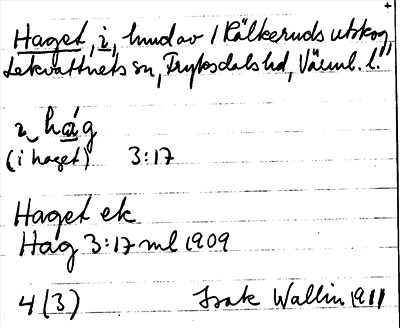 Haget, i, hmd av /Rålkeruds utskog
Lekvattnets sn, Fryksdals hd, Värml. l."
ɩ hág
(i haget) 3:17
Haget ek
Hag 3:17 ml 1909
4 (3) Isak Wallin 1911